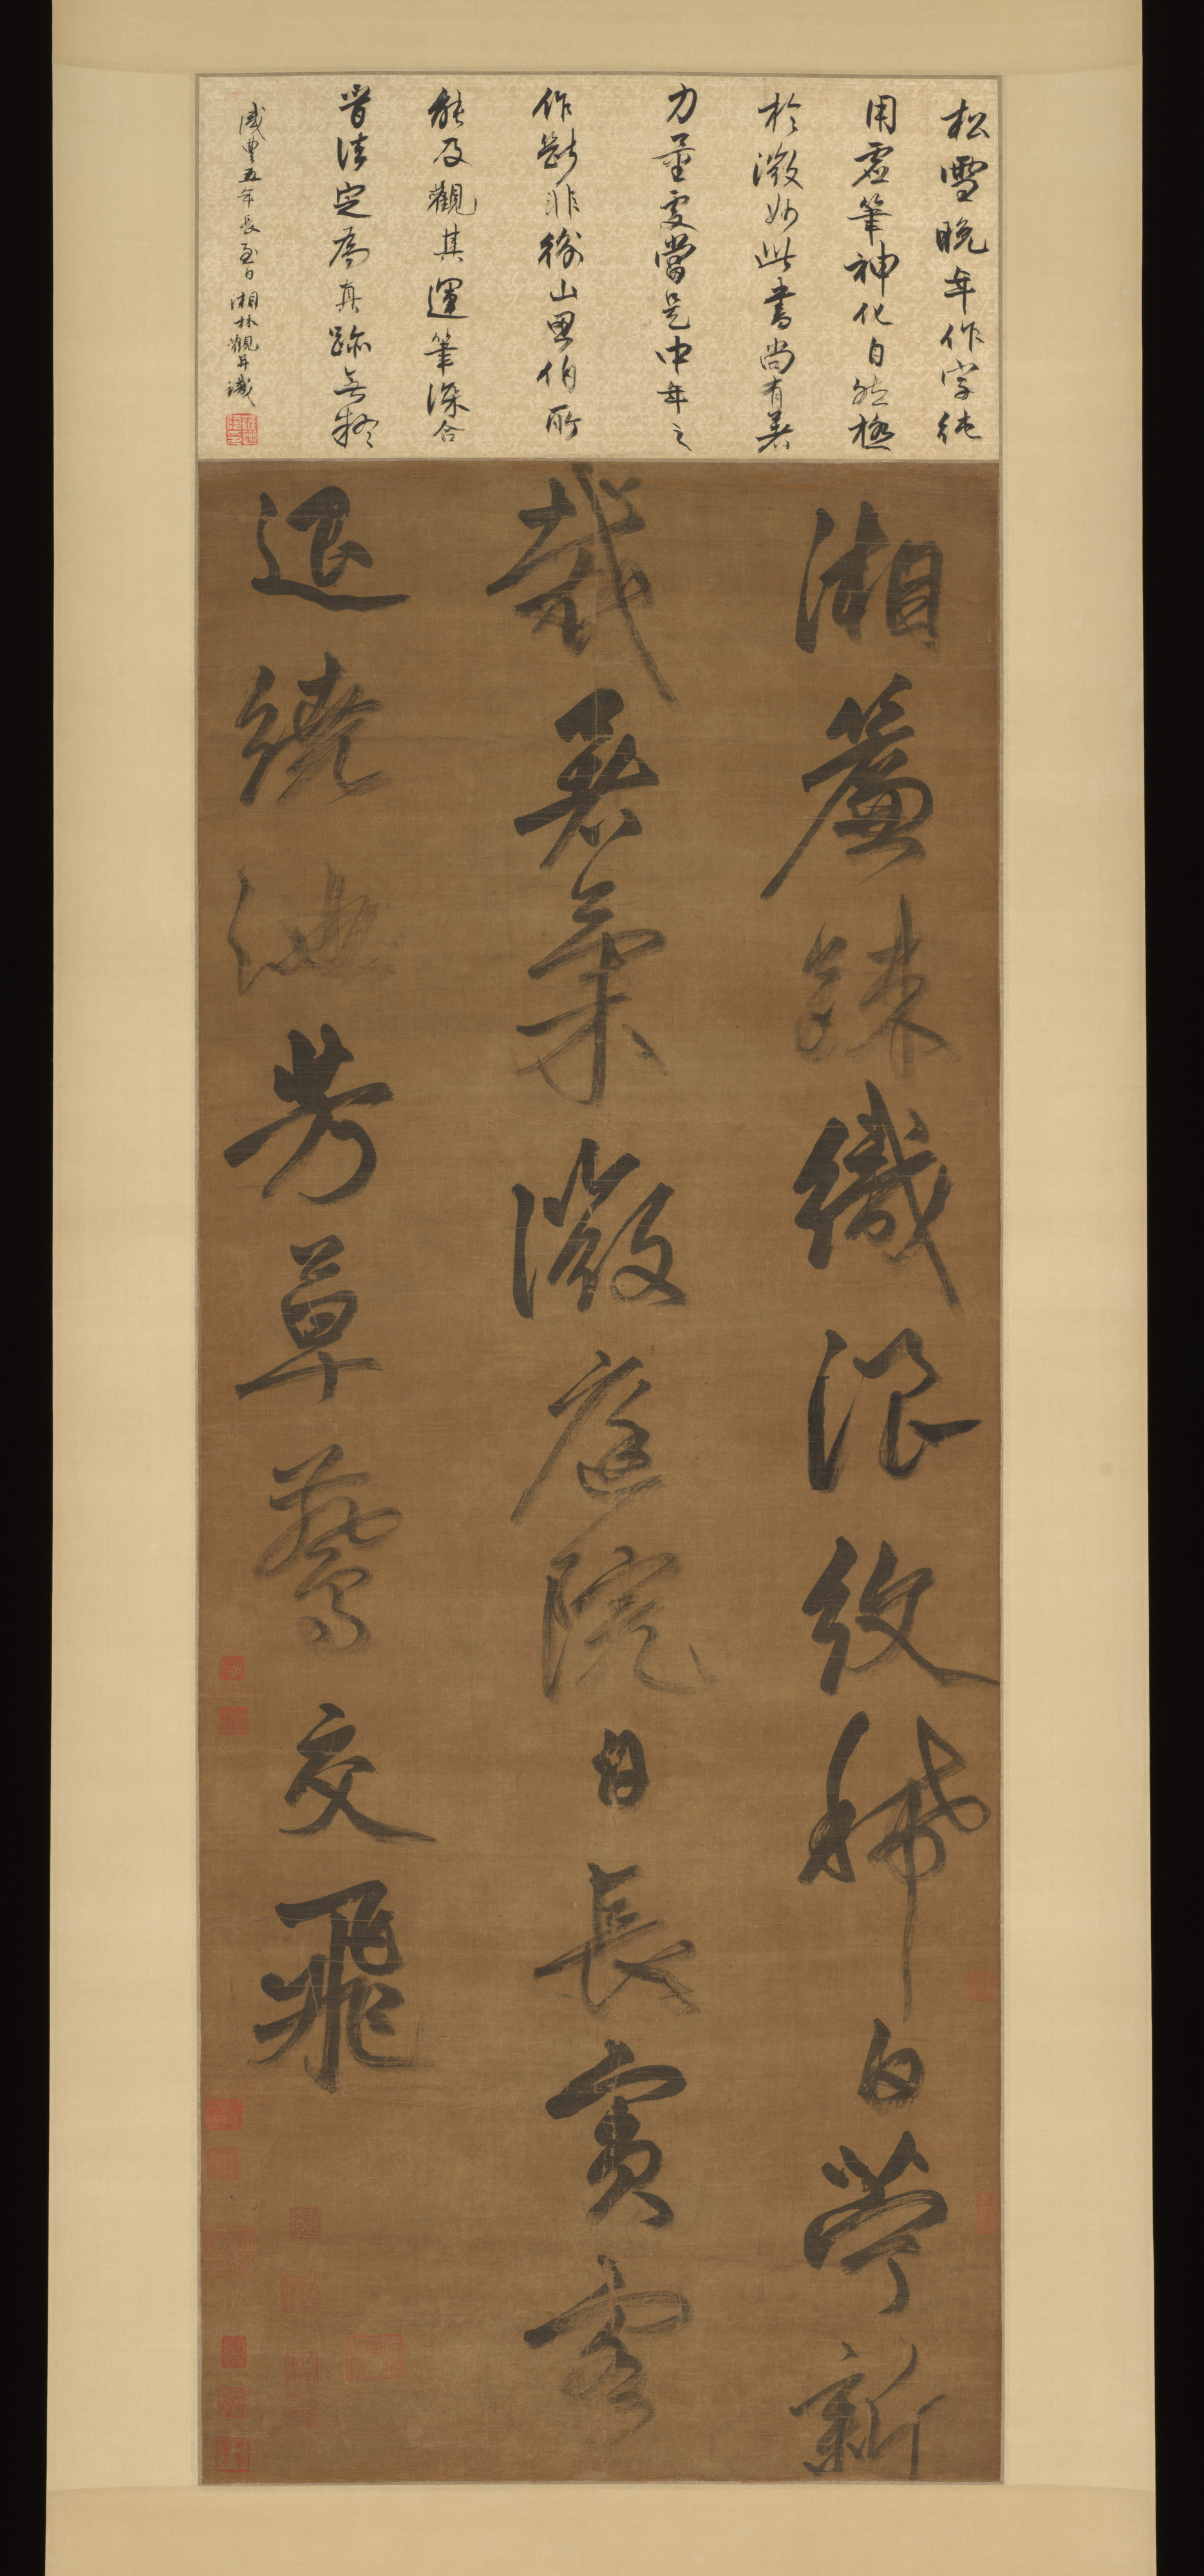 松雪晚年作字純
用虛筆神化自然極
於微妙此書尚有著
力量處當是中年之
作斷非衡山思伯所
能及觀其運筆深合
晉法定為真跡無疑
咸豐五年長至日湘林觀并識
湘簾疎織浪紋稀白苧新
裁暑氣微庭院日長賓客
退繞池芳草鷰交飛